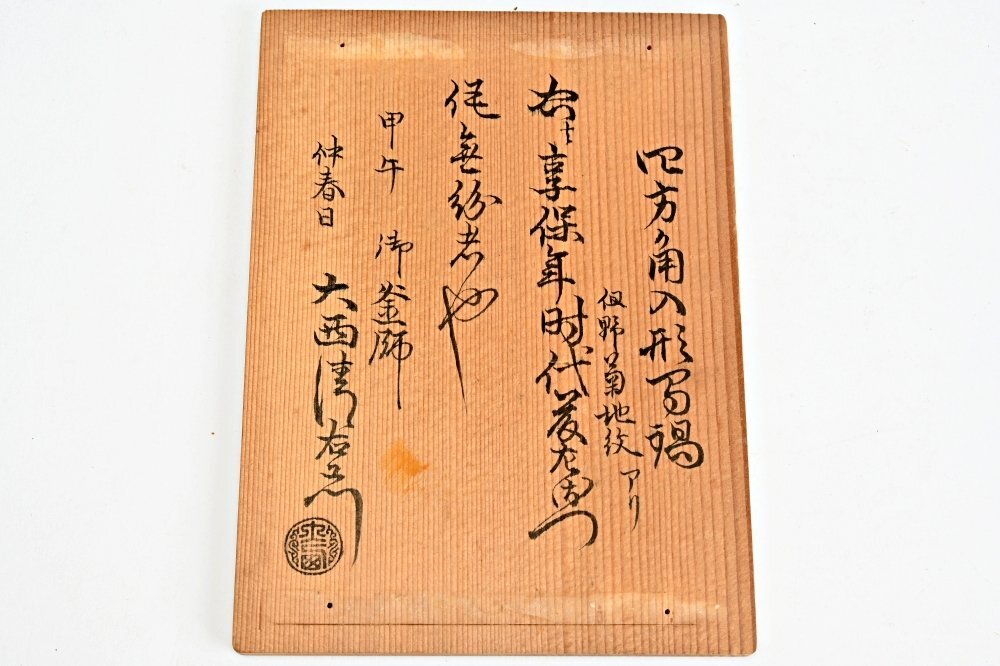 四方角入形間鍋
但野菊地紋アリ
右ハ享保年时代藤左衛门
作無紛者也
甲午 御釜師
仲春日 大西清右衛门
大西